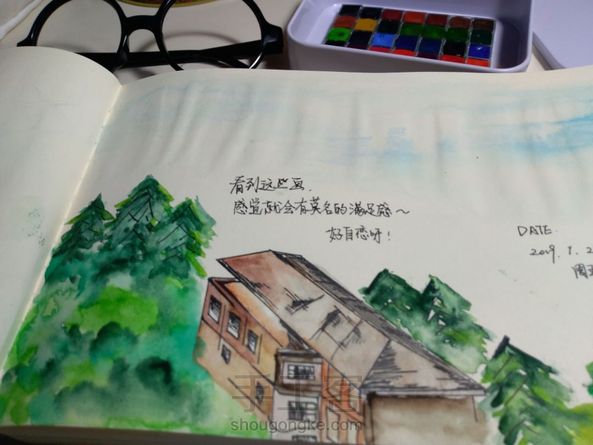 看到这些画，
感觉就会有莫名的满足感～
好自恋呀！
DATE.
2019.1.2
周
手工客
shougongke.com